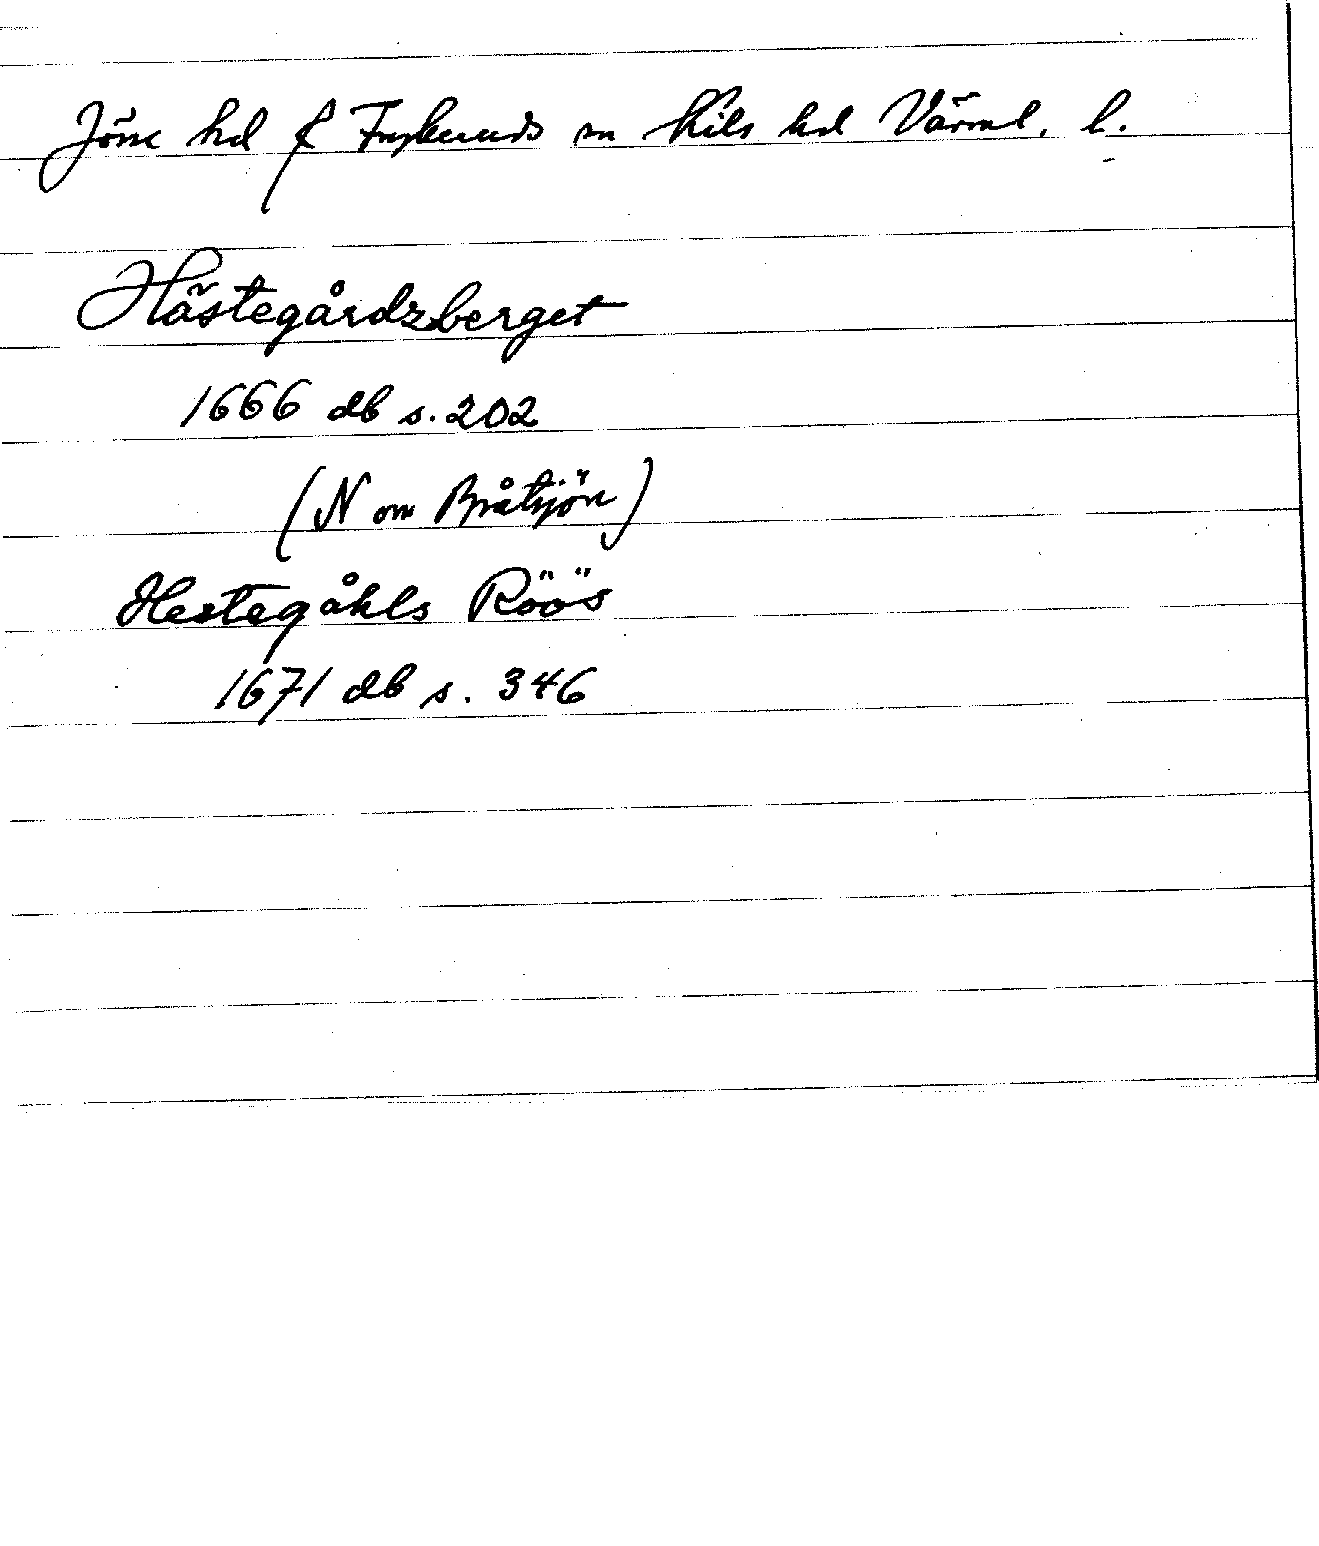 Jösse hd f Fryksände sn Kils hd Värml. l.
Hästegårdzberget
1666 db s. 202
(N om Bråtsjön)
Hestegåhls Röös
1671 db s. 346